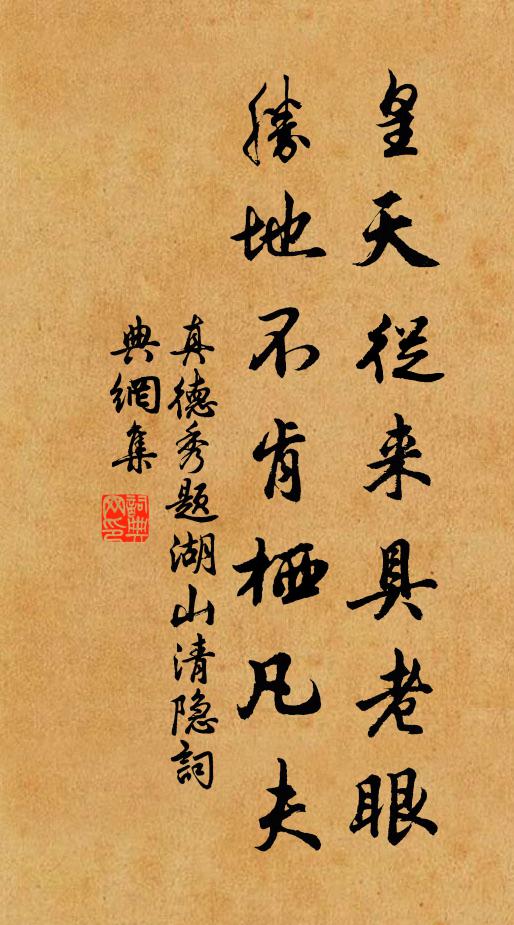 皇天從来具老眼
勝地不肯栖凡夫
真德秀题湖山清隐詞
典網集
詞典
网印